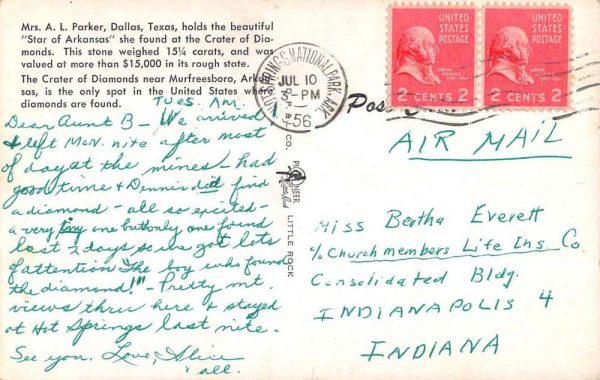 Mrs. A. L. Parker, Dallas, Texas, holds the beautiful
"Star of Arkansas" she found at the Crater of Dia-
monds. This stone weighed 15¼ carats, and was
valued at more than $15,000 in its rough state.
The Crater of Diamonds near Murfreesboro, Arkan-
sas, is the only spot in the United States where
diamonds are found.
Tues. A.M.
Dear Aunt B - We arrived
& left Mon. nite after most
of day at the mines - had
good time & Dennis did find
a diamond - all so excited -
a very tiny one but only one found
last 2 days so we got lots
of attention "The boy who found
the diamond!" - Pretty mt.
views thru here & stayed
at Hot Springs last nite.
See you. Love, Alice
& all.
HOT SPRINGS NATIONAL PARK, ARK.
JUL 10
3-PM
1956
PIONEER
CO.
LITTLE ROCK
UNITED
STATES
POSTAGE
JOHN
ADAMS
2 CENTS 2
UNITED
STATES
POSTAGE
JOHN
ADAMS
2 CENTS 2
Pos
AIR MAIL
Miss Bertha Everett
c/o Church members Life Ins Co
Consolidated Bldg.
INDIANAPOLIS 4
INDIANA